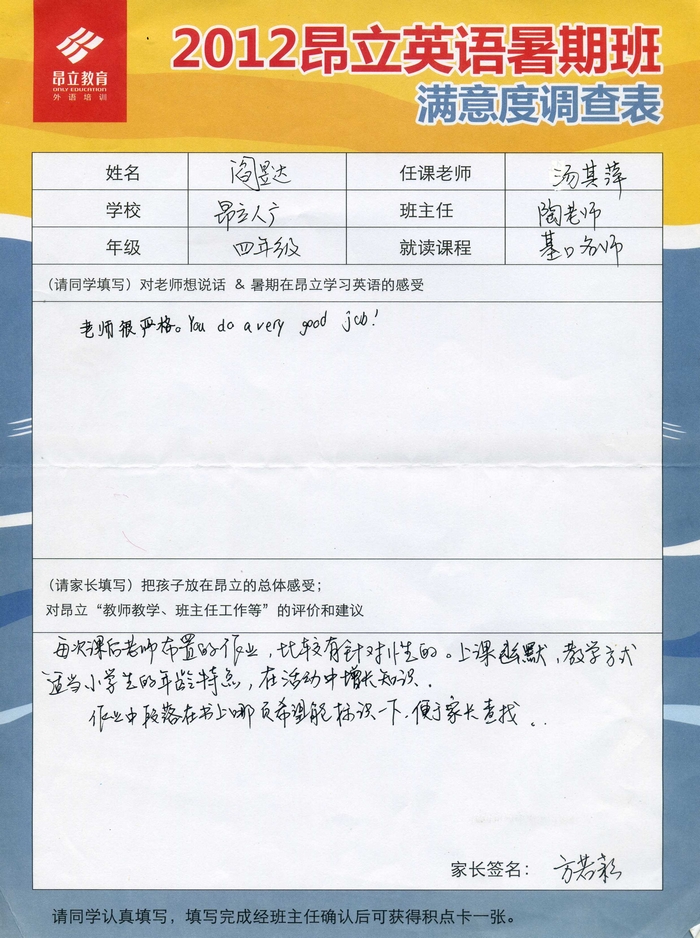 昂立教育
ONLY EDUCATION
外语培训
2012昂立英语暑期班
满意度调查表
姓名 阎昱达 任课老师 汤其萍
学校 昂立人广 班主任 陶老师
年级 四年级 就读课程 基口名师
(请同学填写)对老师想说话 & 暑期在昂立学习英语的感受
老师很严格。You do a very good job!
(请家长填写)把孩子放在昂立的总体感受;
对昂立“教师教学、班主任工作等”的评价和建议
每次课后老师布置的作业,比较有针对性的。上课幽默,教学方式
适当小学生的年龄特点,在活动中增长知识.
作业中段落在书上哪页希望能标识一下,便于家长查找..
家长签名: 方若
请同学认真填写,填写完成经班主任确认后可获得积点卡一张。